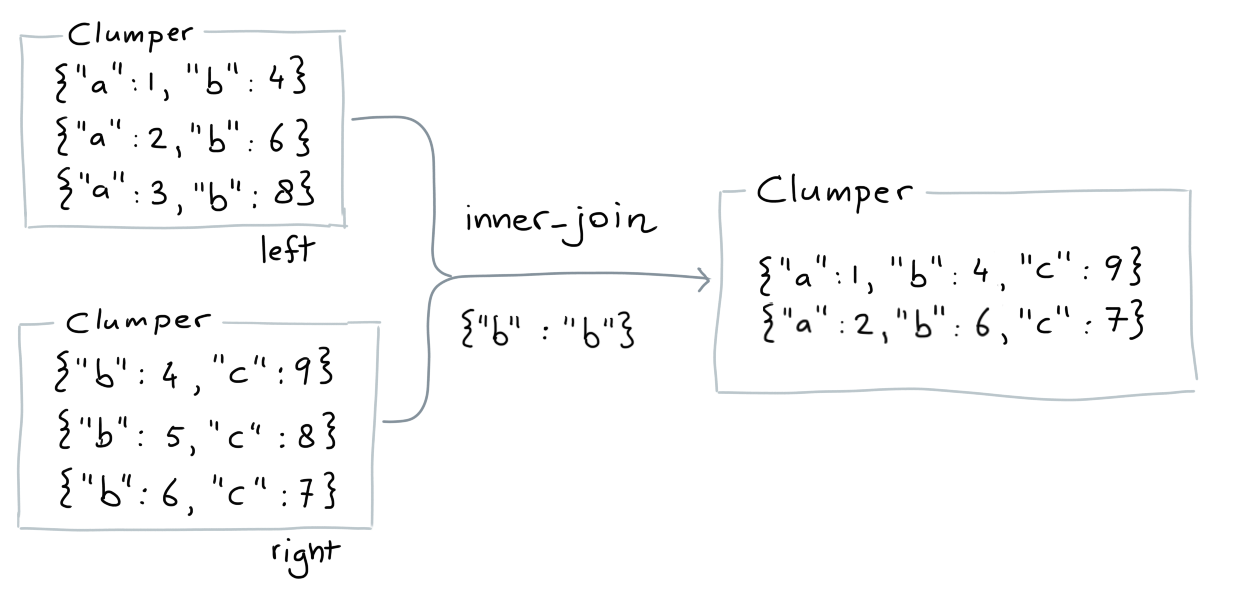 Clumper
{"a":1, "b": 4}
{"a": 2,"b": 6}
{"a": 3,"b": 8}
left
Clumper
{"b": 4, "c": 9}
{"b": 5, "c": 8}
{"b": 6, "c": 7}
right
inner_join
{"b" : "b"}
Clumper
{"a":1, "b": 4, "c": 9}
{"a": 2,"b": 6, "c": 7}